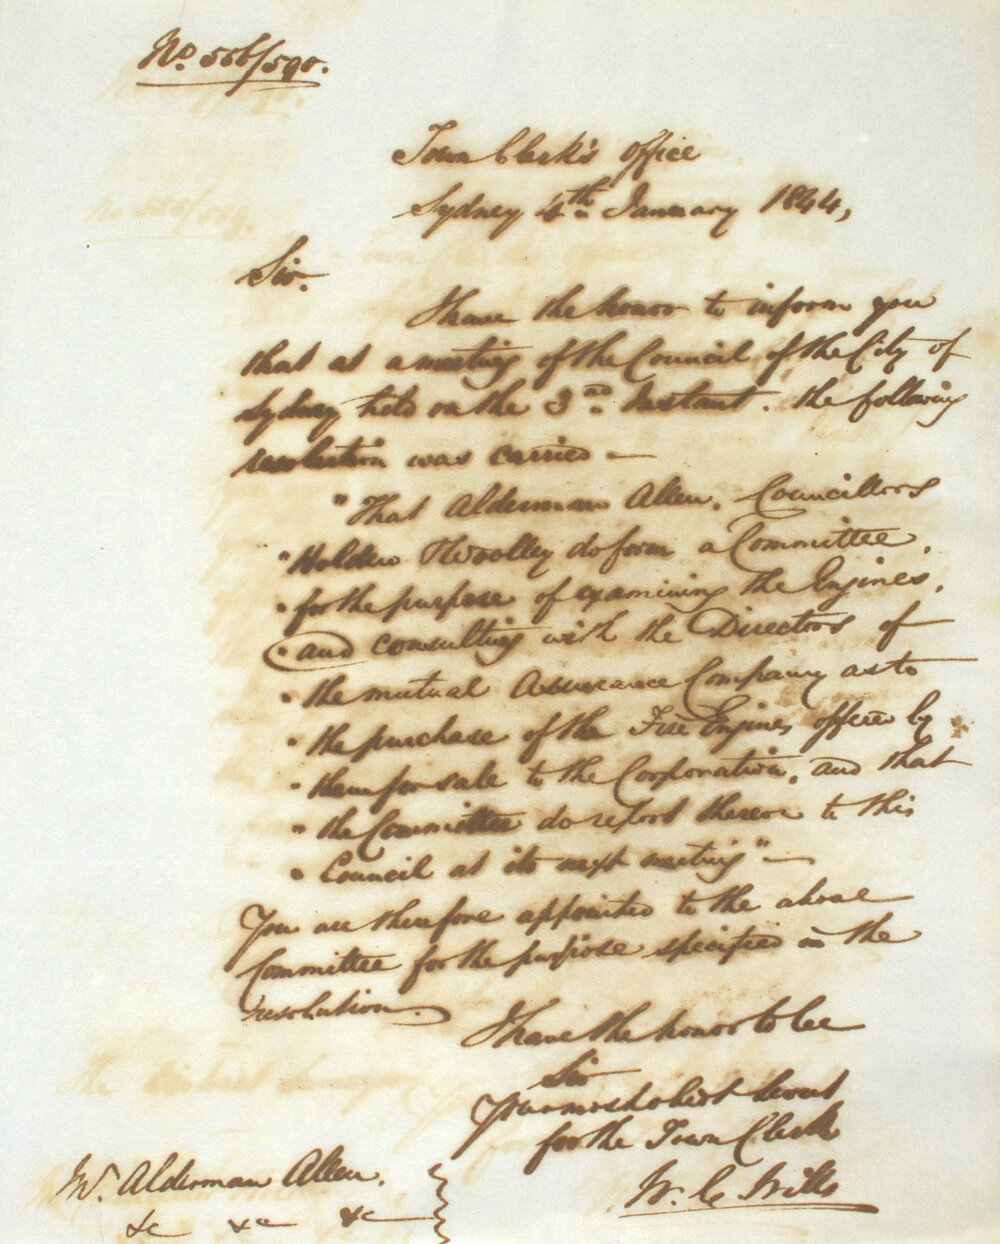 No. 586/590.
Town Clerk's Office
Sydney 4th January 1844,
Sir.
I have the honor to inform you
that at a meeting of the Council of the City of
Sydney held on the 3rd Instant. the following
resolution was carried —
"That Alderman Allen, Councillors
"Holden & Woolley do form a Committee,
"for the purpose of examining the Engines,
"and consulting with the Directors of
"the mutual Assurance Company as to
"the purchase of the Fire Engines offered by
"them for sale to the Corporation, and that
"the Committee do report thereon to this
"Council at its next meeting" —
You are therefore appointed to the above
Committee for the purpose specified in the
resolution.
I have the honor to be
Sir
Your most obedt Servt
for the Town Clerk
W. C. Wills
Mr. Alderman Allen.
&c &c &c